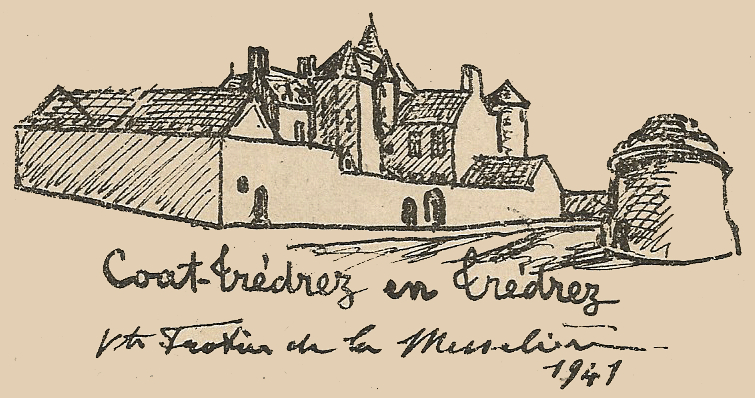 Coat-Trédrez en Trédrez
Vte Frotier de la Messelière
1941